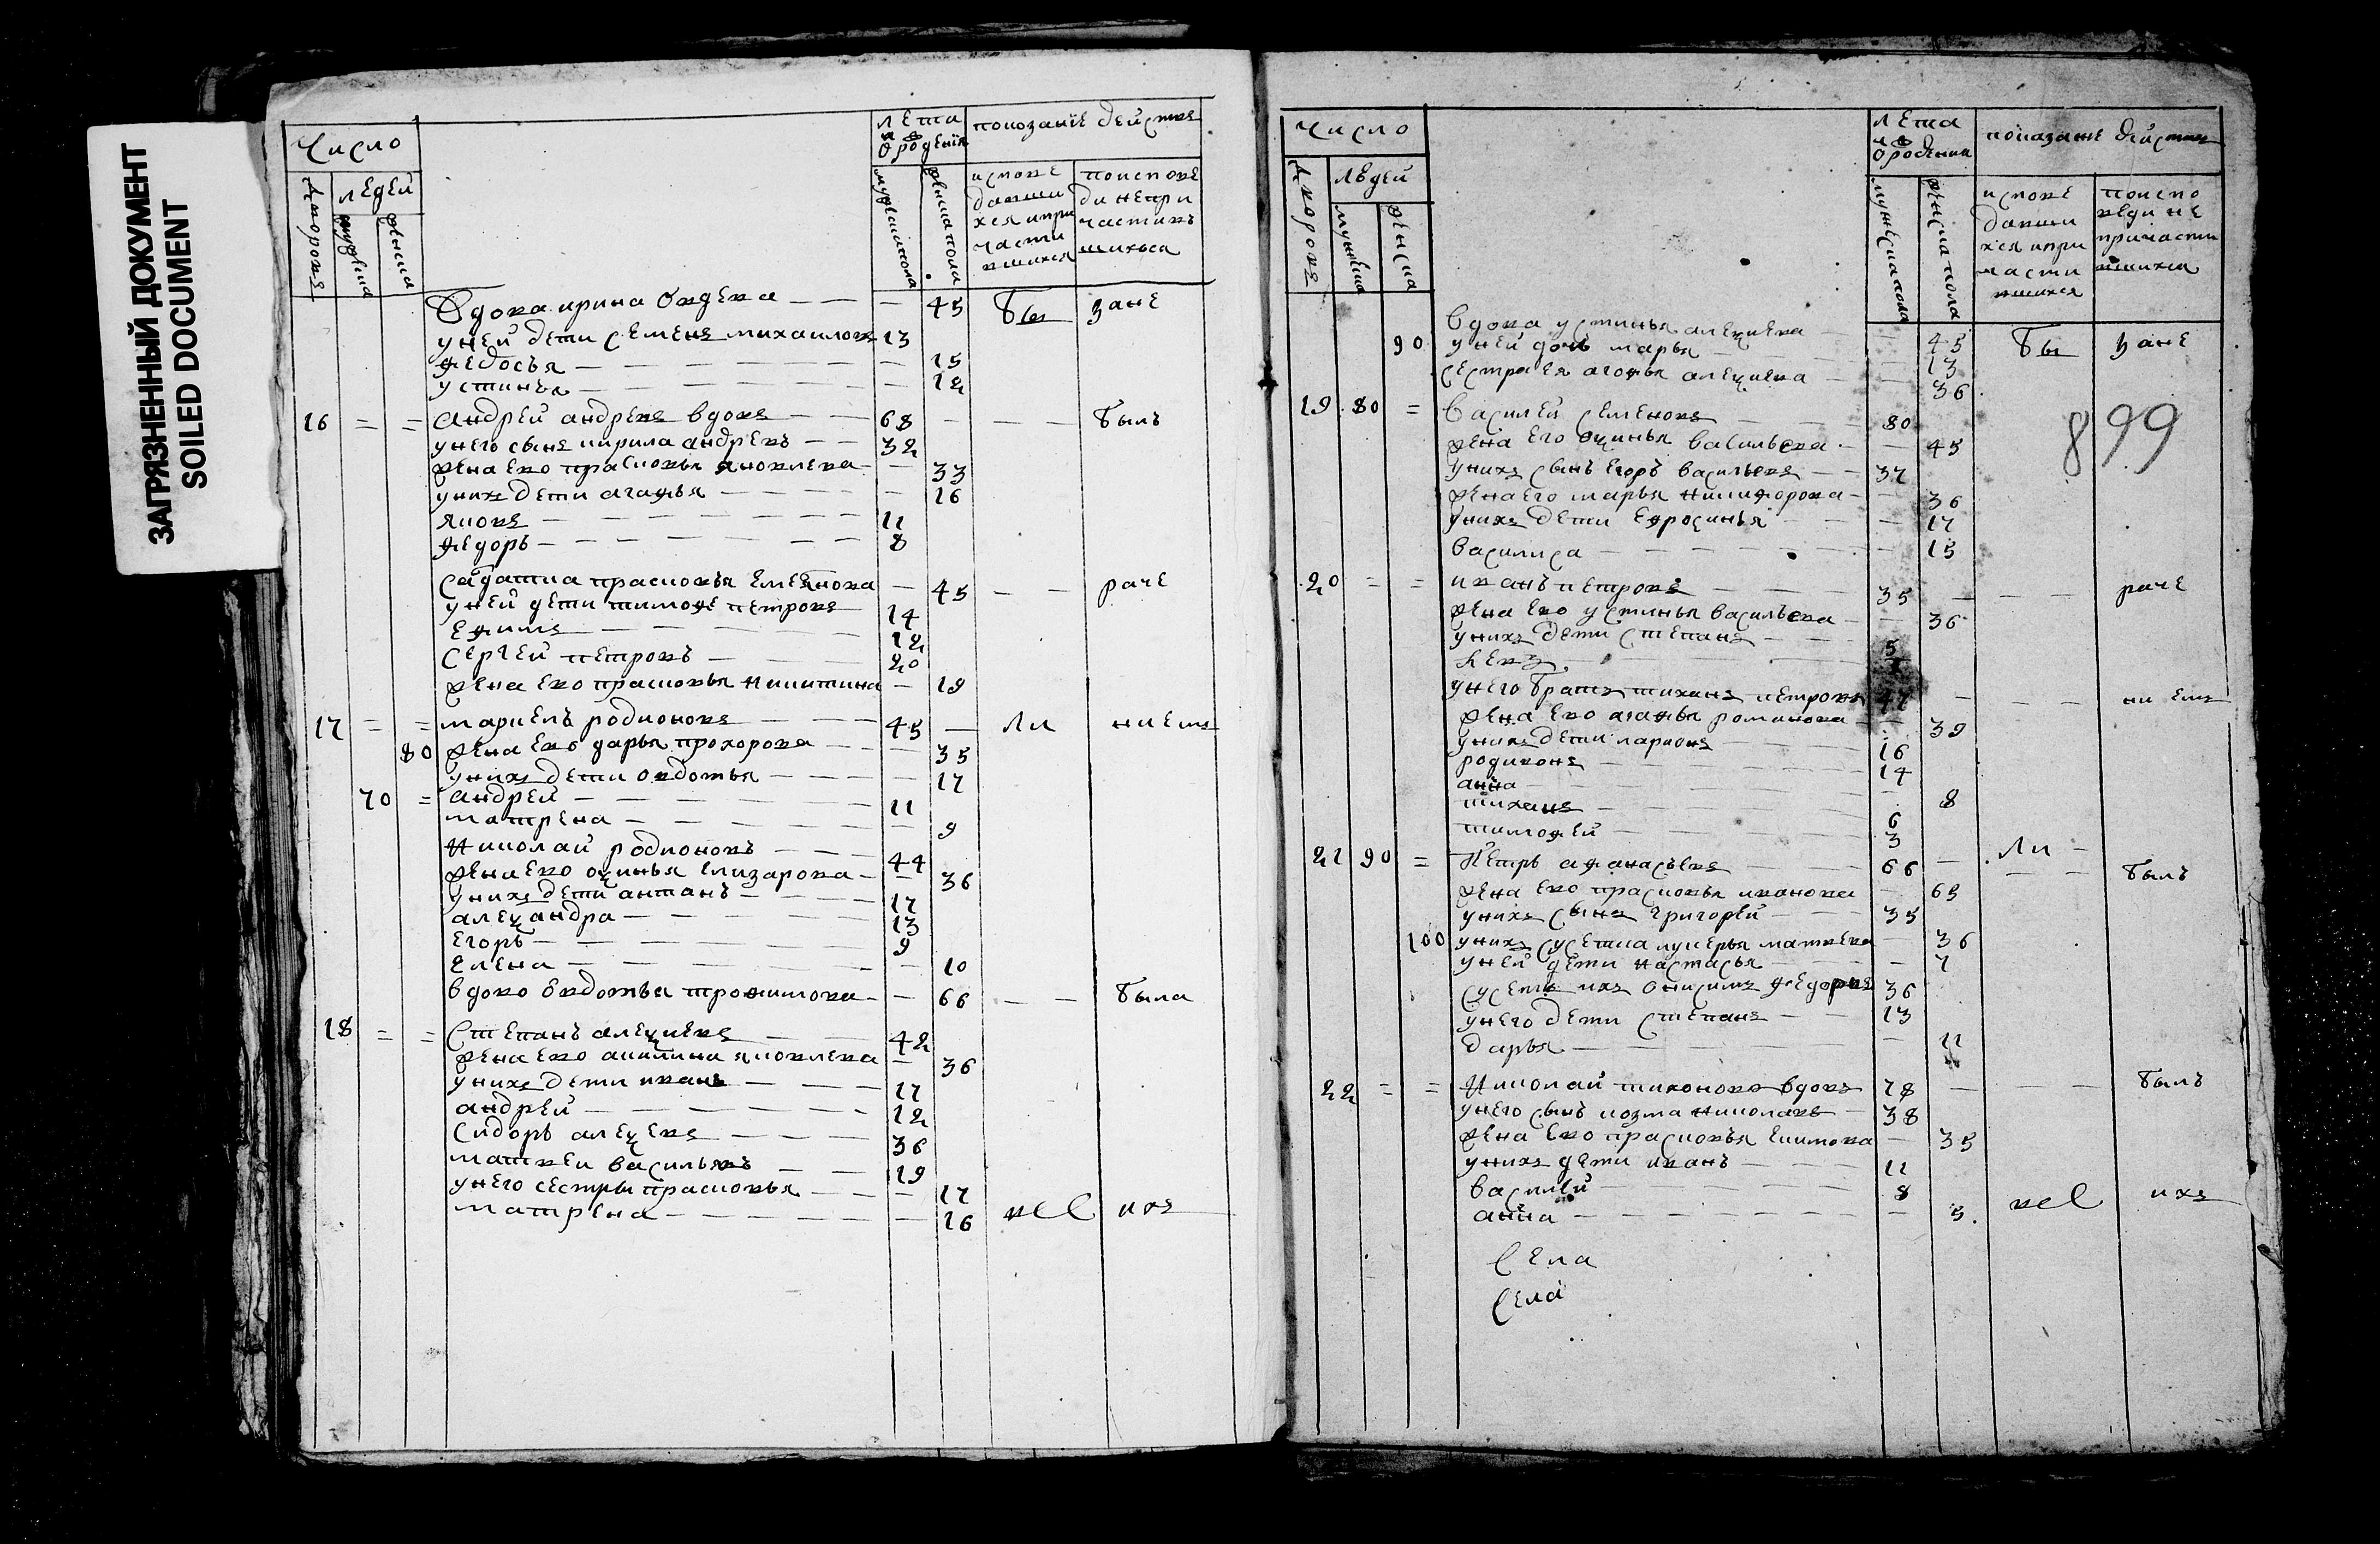 ЗАГРЯЗНЕННЫЙ ДОКУМЕНТ
SOILED DOCUMENT
Число
лета
от рождения
показание действъ
дворовъ
людей
мужеска
женска
мужеска пола
женска пола
испове
давши
хся и при
части
вшихся
по испове
ди не при
частивъ
шихься
Вдова ирина овдева — — — 45 бы зане
у ней дети семенъ михаиловъ 13
федосья — — — 15
устинья — — — 12
16 = = андрей андревъ вдовъ — — 68 — — — былъ
у него сынъ кирила андревъ — — 32
жена ево прасковья яковлева — — 33
у нихъ дети агафья — — — 16
яковъ — — — 11
федоръ — — — 8
салдатка прасковья емелянова — 45 — — раче
у ней дети тимофе петровъ 14
ефимъ — — — 12
сергей петровъ — 20
жена ево прасковья никитина — 19
17 = = маркелъ родионовъ — — — 45 — ли ниемъ
80 жена ево дарья прохорова — — — 35
у нихъ дети овдотья — — — 17
70 = андрей — — — 11
матрена — — — 9
николай родионовъ — — — 44
жена ево оксинья елизарова — — 36
у нихъ дети антанъ — — — 17
александра — — — 13
егоръ — — — 9
елена — — — 10
вдово овдотья трофимова — — 66 — — была
18 = = степанъ алексиевъ — — 42
жена ево акилина яковлева — 36
у нихъ дети иванъ — — — 17
андрей — — — 12
сидоръ алексевъ — — — 36
матвеи васильявъ — — 19
у него сестры прасковья — — — 17
матрена — — — 16 все ихъ
Число
лета
от рождения
показание действъ
дворовъ
людей
мужеска
женска
мужеска пола
женска пола
испове
давши
хся и при
части
вшихся
по испо
веди не
причасти
вшихся
вдова устинья алексиева — — 45 бы зане
90 у ней дочь марья — — 13
сестра ея агофья алексиева — — 36
899
19 80 = василей семеновъ — 80
жена его оксинья васильева — — 45
у нихъ сынъ егоръ васильевъ — — 37
жена его марья никифорова — — 36
у нихъ дети ефросинья — — — 17
василиса — — — 15
20 = = иванъ петровъ — — 35 — — — раче
жена ево устинья васильева — — 36
у нихъ дети степанъ — — 5
у него братъ тиханъ петровъ 47 — — — ниемъ
жена ево агафья романова — — 39
у нихъ дети ларионъ — — 16
родивонъ — — 14
анна — — 8
тиханъ — — 6
тимофей — — 3
21 90 = петръ афанасьевъ — — 66 — ли — — — былъ
жена ево прасковья иванова — 65
у нихъ сынъ григорей — — 35
100 у нихъ суседка лукерья матвева — 36
у ней дети настасья — — 7
суседъ ихъ онисимъ федоровъ 36
у него дети степанъ — — 13
дарья — — — 11
22 = = николай тихоновъ вдовъ 78 — — — былъ
у него сынъ козма николаевъ — 38
жена ево прасковья екимова — 35
у нихъ дети иванъ — — — 11
василей — — — 8
анна — — — 5. все ихъ
села
села